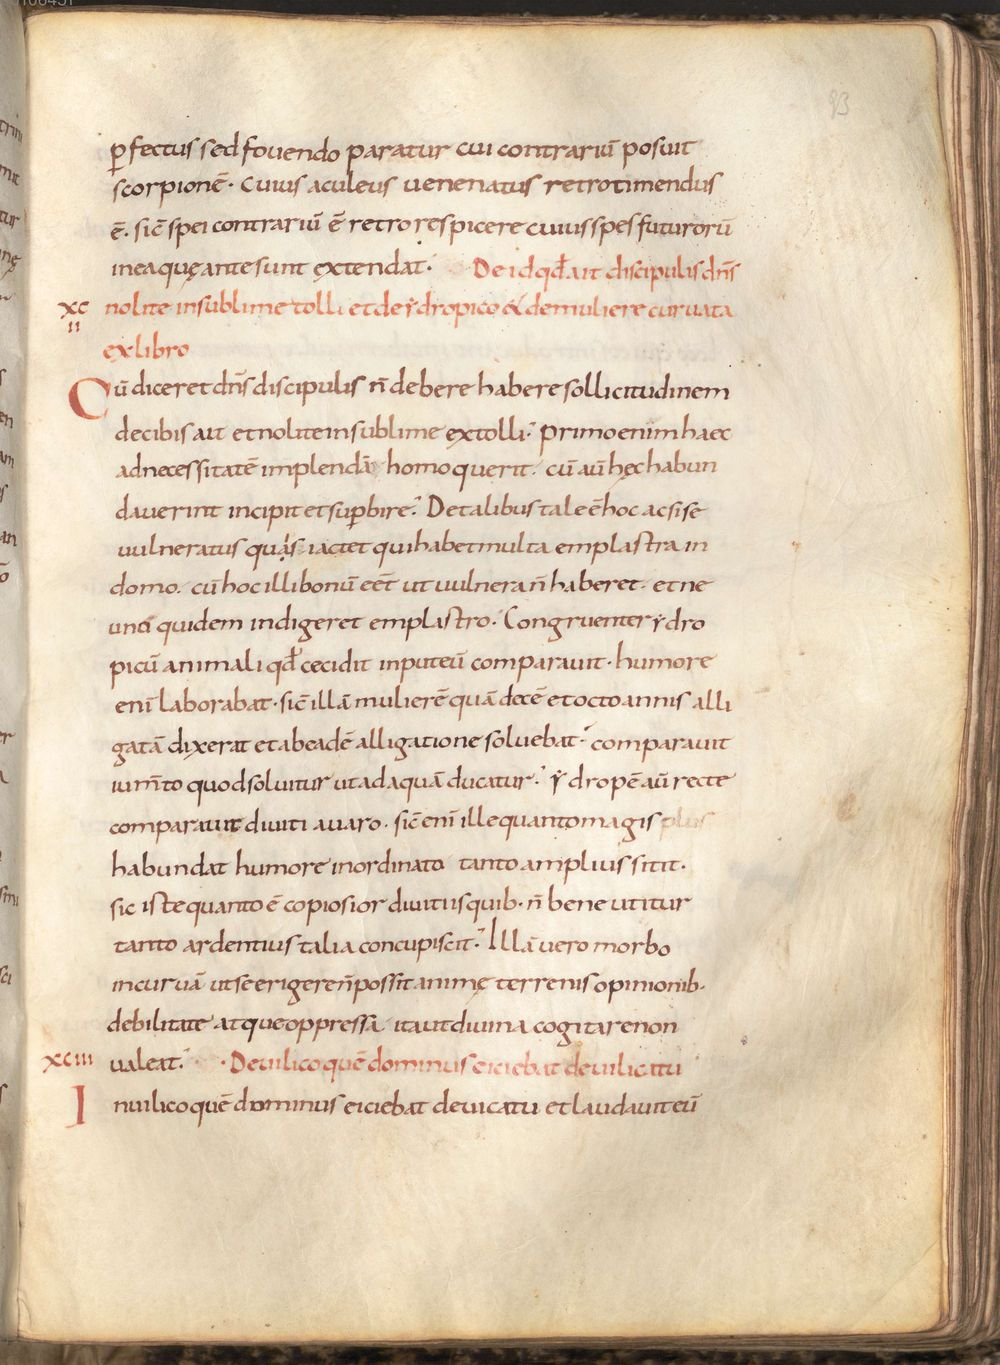 93
p̱fectus sed fouendo paratur cui contrariū posuit
scorpionē· Cuius aculeus uenenatus retro timendus
ē. sic̄ spei contrariū ē retro respicere cuius spes futurorū
in ea quę ante sunt extendat· De id qd̄ ait discipulis dn̄s
xcii nolite in sublime tolli et de ydropico & de muliere curuata
ex libro
Cū diceret dn̄s discipulis n̄ debere habere sollicitudinem
de cibis ait et nolite in sublime extolli· Primo enim haec
ad necessitatē implendā homo querit· cū aū hęc habun
dauerint incipit et sup̱bire· De talibus tale ē hoc ac si se
uulneratus quasi iactet qui habet multa emplastra in
domo. cū hoc illi bonū eēt ut uulnera n̄ haberet· et ne
uno quidem indigeret emplastro· Congruenter ydro
picū animali qd̄ cecidit in puteū comparauit· humore
enī laborabat· sic̄ illā mulierē quā decē et octo annis alli
gatā dixerat et ab eadē alligatione soluebat· comparauit
ium̄to quod soluitur ut ad aquā ducatur· Ydropē aū recte
comparauit diuiti auaro. sic̄ enī ille quanto magis plus
habundat humore inordinato tanto amplius sitit·
sic iste quanto ē copiosior diuitiis quib· n̄ bene utitur
tanto ardentius talia concupiscit· Illā uero morbo
incuruā ut se erigere n̄ possit animę terrenis opinionib·
debilitate atque oppressā ita ut diuina cogitare non
xciii ualeat· De uilico quē dominus eiciebat de uilicatu
In uilico quē dominus eiciebat de uicatu et laudauit eū